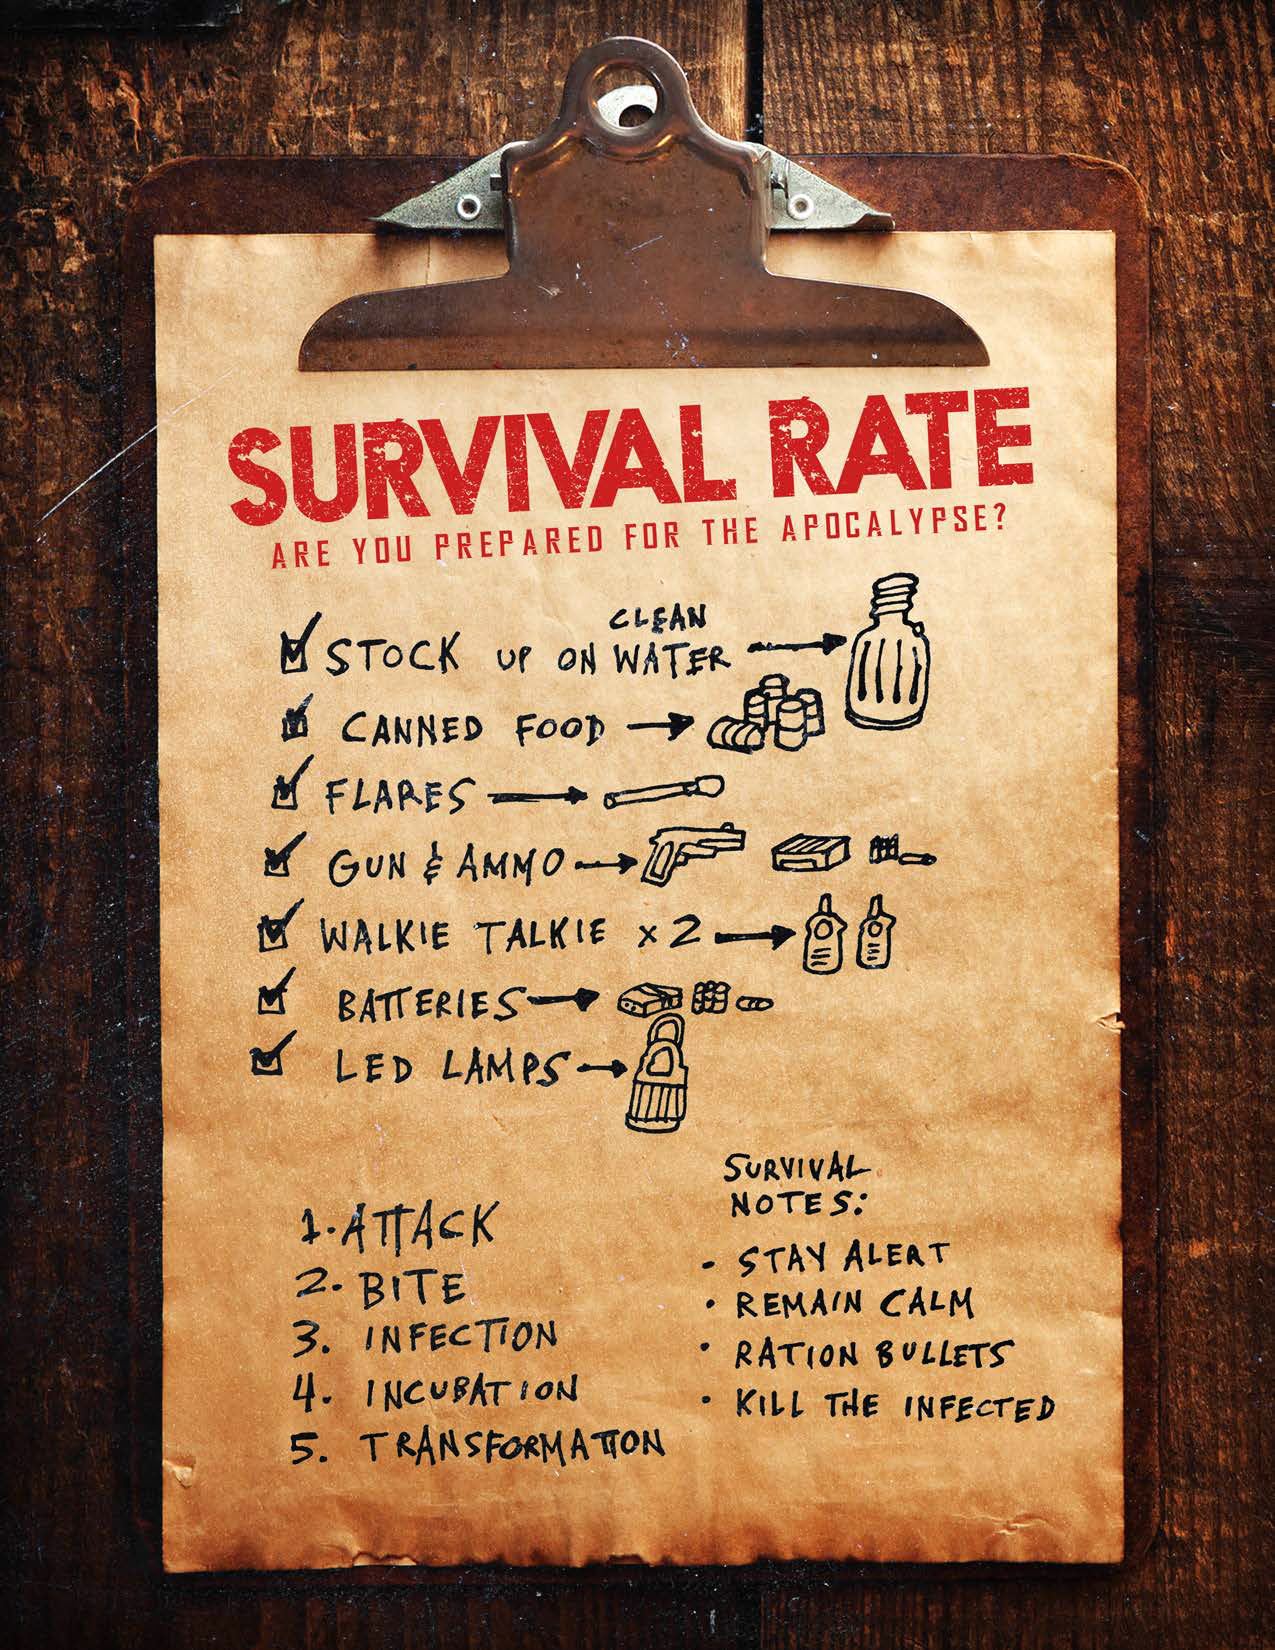 SURVIVAL RATE
ARE YOU PREPARED FOR THE APOCALYPSE?
CLEAN
STOCK UP ON WATER
CANNED FOOD
FLARES
GUN & AMMO
WALKIE TALKIE x 2
BATTERIES
LED LAMPS
1. ATTACK
2. BITE
3. INFECTION
4. INCUBATION
5. TRANSFORMATION
SURVIVAL
NOTES:
• STAY ALERT
• REMAIN CALM
• RATION BULLETS
• KILL THE INFECTED